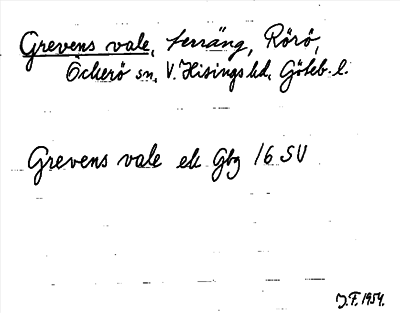 Grevens vale, terräng, Rörö,
Öckerö sn, V. Hisings hd, Göteb. l.
Grevens vale ek Gbg 16 SV
J.F. 1954.